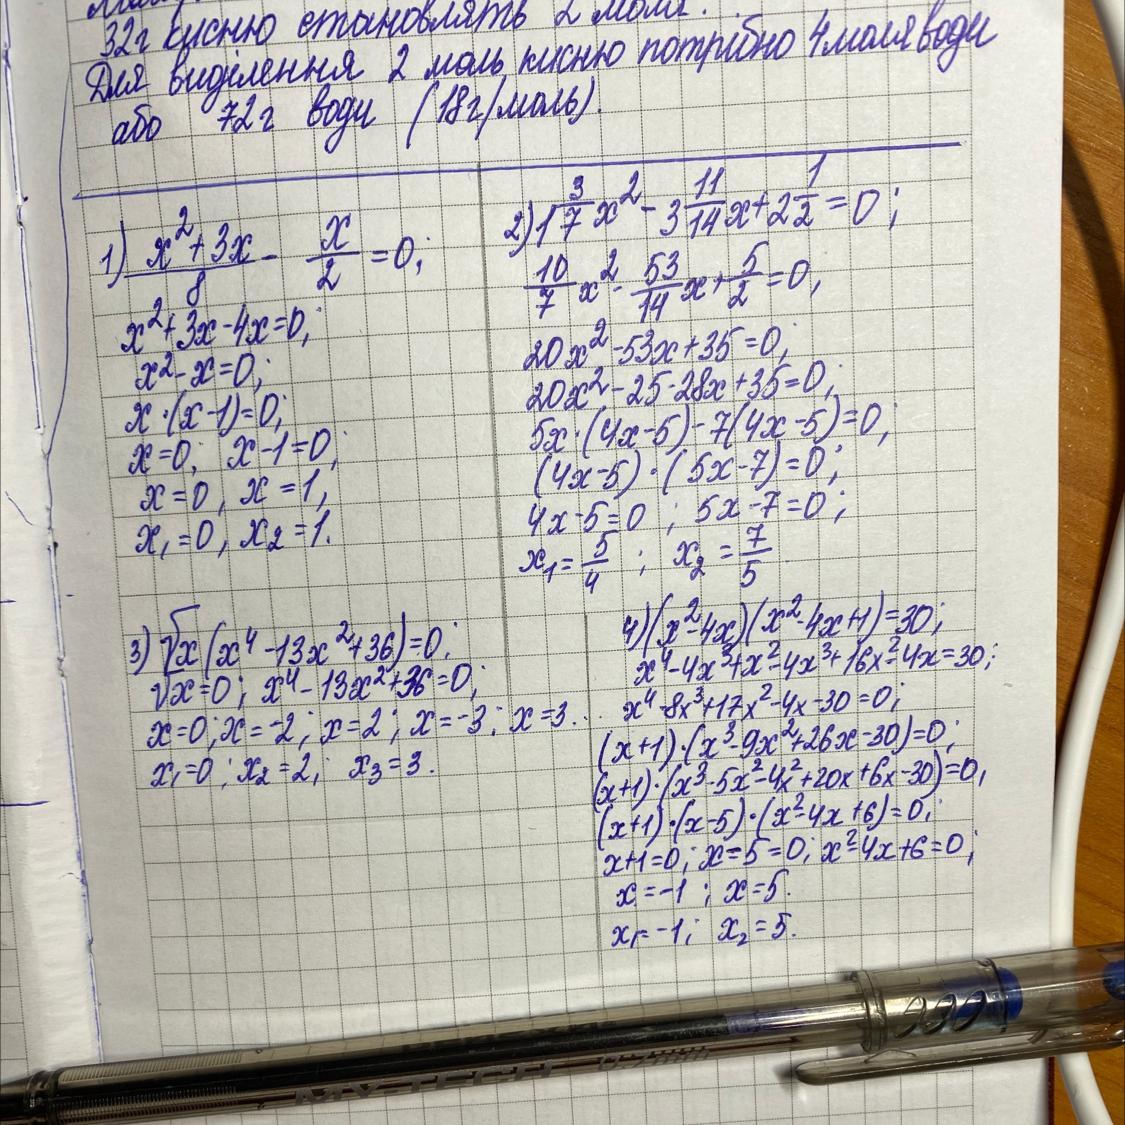 32г кисню становлять 2 моля.
Для виділення 2 моль кисню потрібно 4 моля води
або 72г води (18г/моль).
1) (x²+3x)/8 - x/2 = 0;
x²+3x-4x=0;
x²-x=0;
x·(x-1)=0;
x=0; x-1=0;
x=0, x=1,
x₁=0, x₂=1.
2) 1 3/7 x² - 3 11/14 x + 2 1/2 = 0;
10/7 x² - 53/14 x + 5/2 = 0,
20x²-53x+35=0;
20x²-25-28x+35=0;
5x·(4x-5)-7(4x-5)=0;
(4x-5)·(5x-7)=0;
4x-5=0; 5x-7=0;
x₁=5/4; x₂=7/5
3) √x(x⁴-13x²+36)=0;
√x=0; x⁴-13x²+36=0;
x=0; x=-2; x=2; x=-3; x=3.
x₁=0; x₂=2; x₃=3.
4) (x²-4x)(x²-4x+1)=30;
x⁴-4x³+x²-4x³+16x²-4x=30;
x⁴-8x³+17x²-4x-30=0;
(x+1)·(x³-9x²+26x-30)=0;
(x+1)·(x³-5x²-4x²+20x+6x-30)=0,
(x+1)·(x-5)·(x²-4x+6)=0;
x+1=0; x-5=0; x²-4x+6=0;
x=-1; x=5.
x₁=-1; x₂=5.
MY-TECH 0.7mm